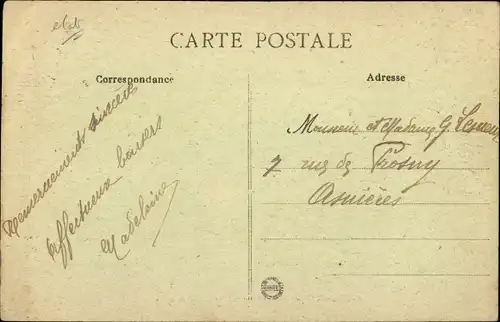 CARTE POSTALE
Correspondance
Adresse
Remerciements sincères
Affectueux baisers
Madeleine
Monsieur et Madame G.
7 rue de
Asnières